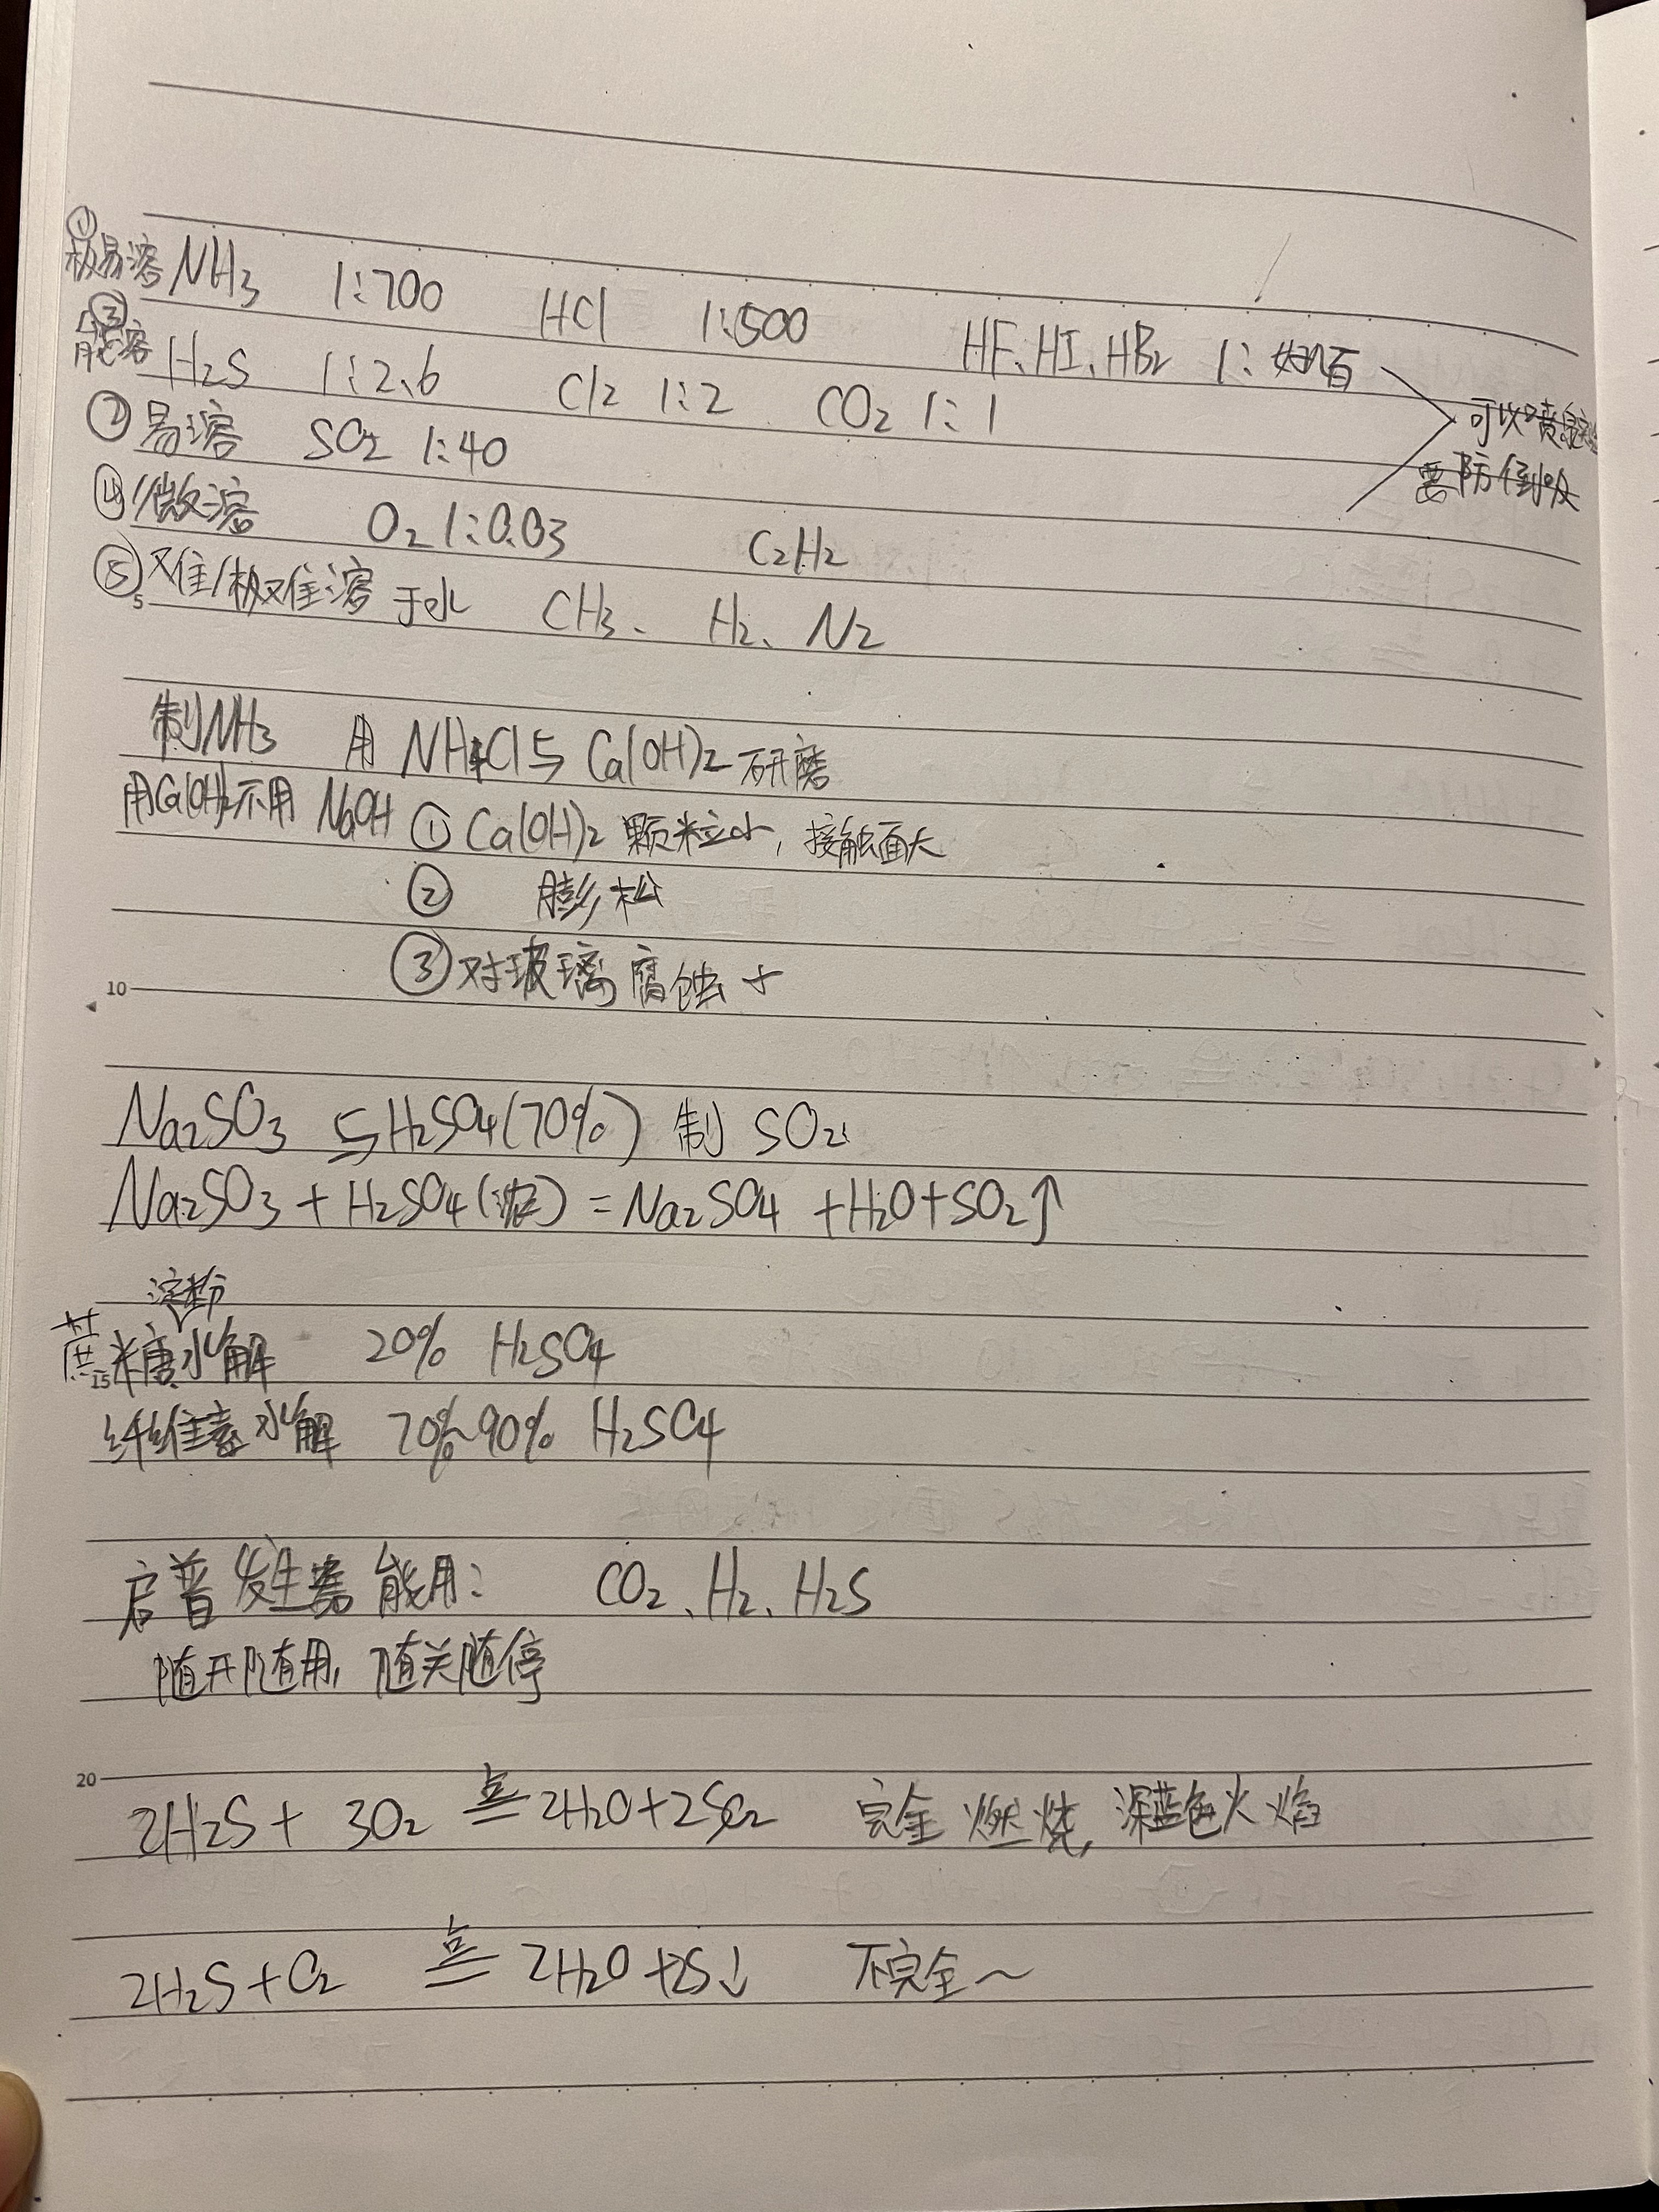 ①极易溶 NH3 1:700 HCl 1:500 HF、HI、HBr 1:
③能溶 H2S 1:2.6 Cl2 1:2 CO2 1:1
②易溶 SO2 1:40
可以喷泉
要防倒吸
④微溶 O2 1:0.03 C2H2
⑤难/极难溶于水 CH3、H2、N2
制NH3 用 NH4Cl与 Ca(OH)2 研磨
用Ca(OH)2不用 NaOH ①Ca(OH)2 颗粒小，接触面大
② 膨松
③对玻璃腐蚀小
Na2SO3 与H2SO4(70%) 制 SO2:
Na2SO3 + H2SO4(浓) = Na2SO4 + H2O + SO2↑
淀粉
蔗糖水解 20% H2SO4
纤维素水解 70%~90% H2SO4
启普发生器能用: CO2、H2、H2S
随开随用，随关随停
2H2S + 3O2 点= 2H2O+2SO2 完全燃烧，淡蓝色火焰
2H2S + O2 点= 2H2O +2S↓ 不完全~
10
15
20
5